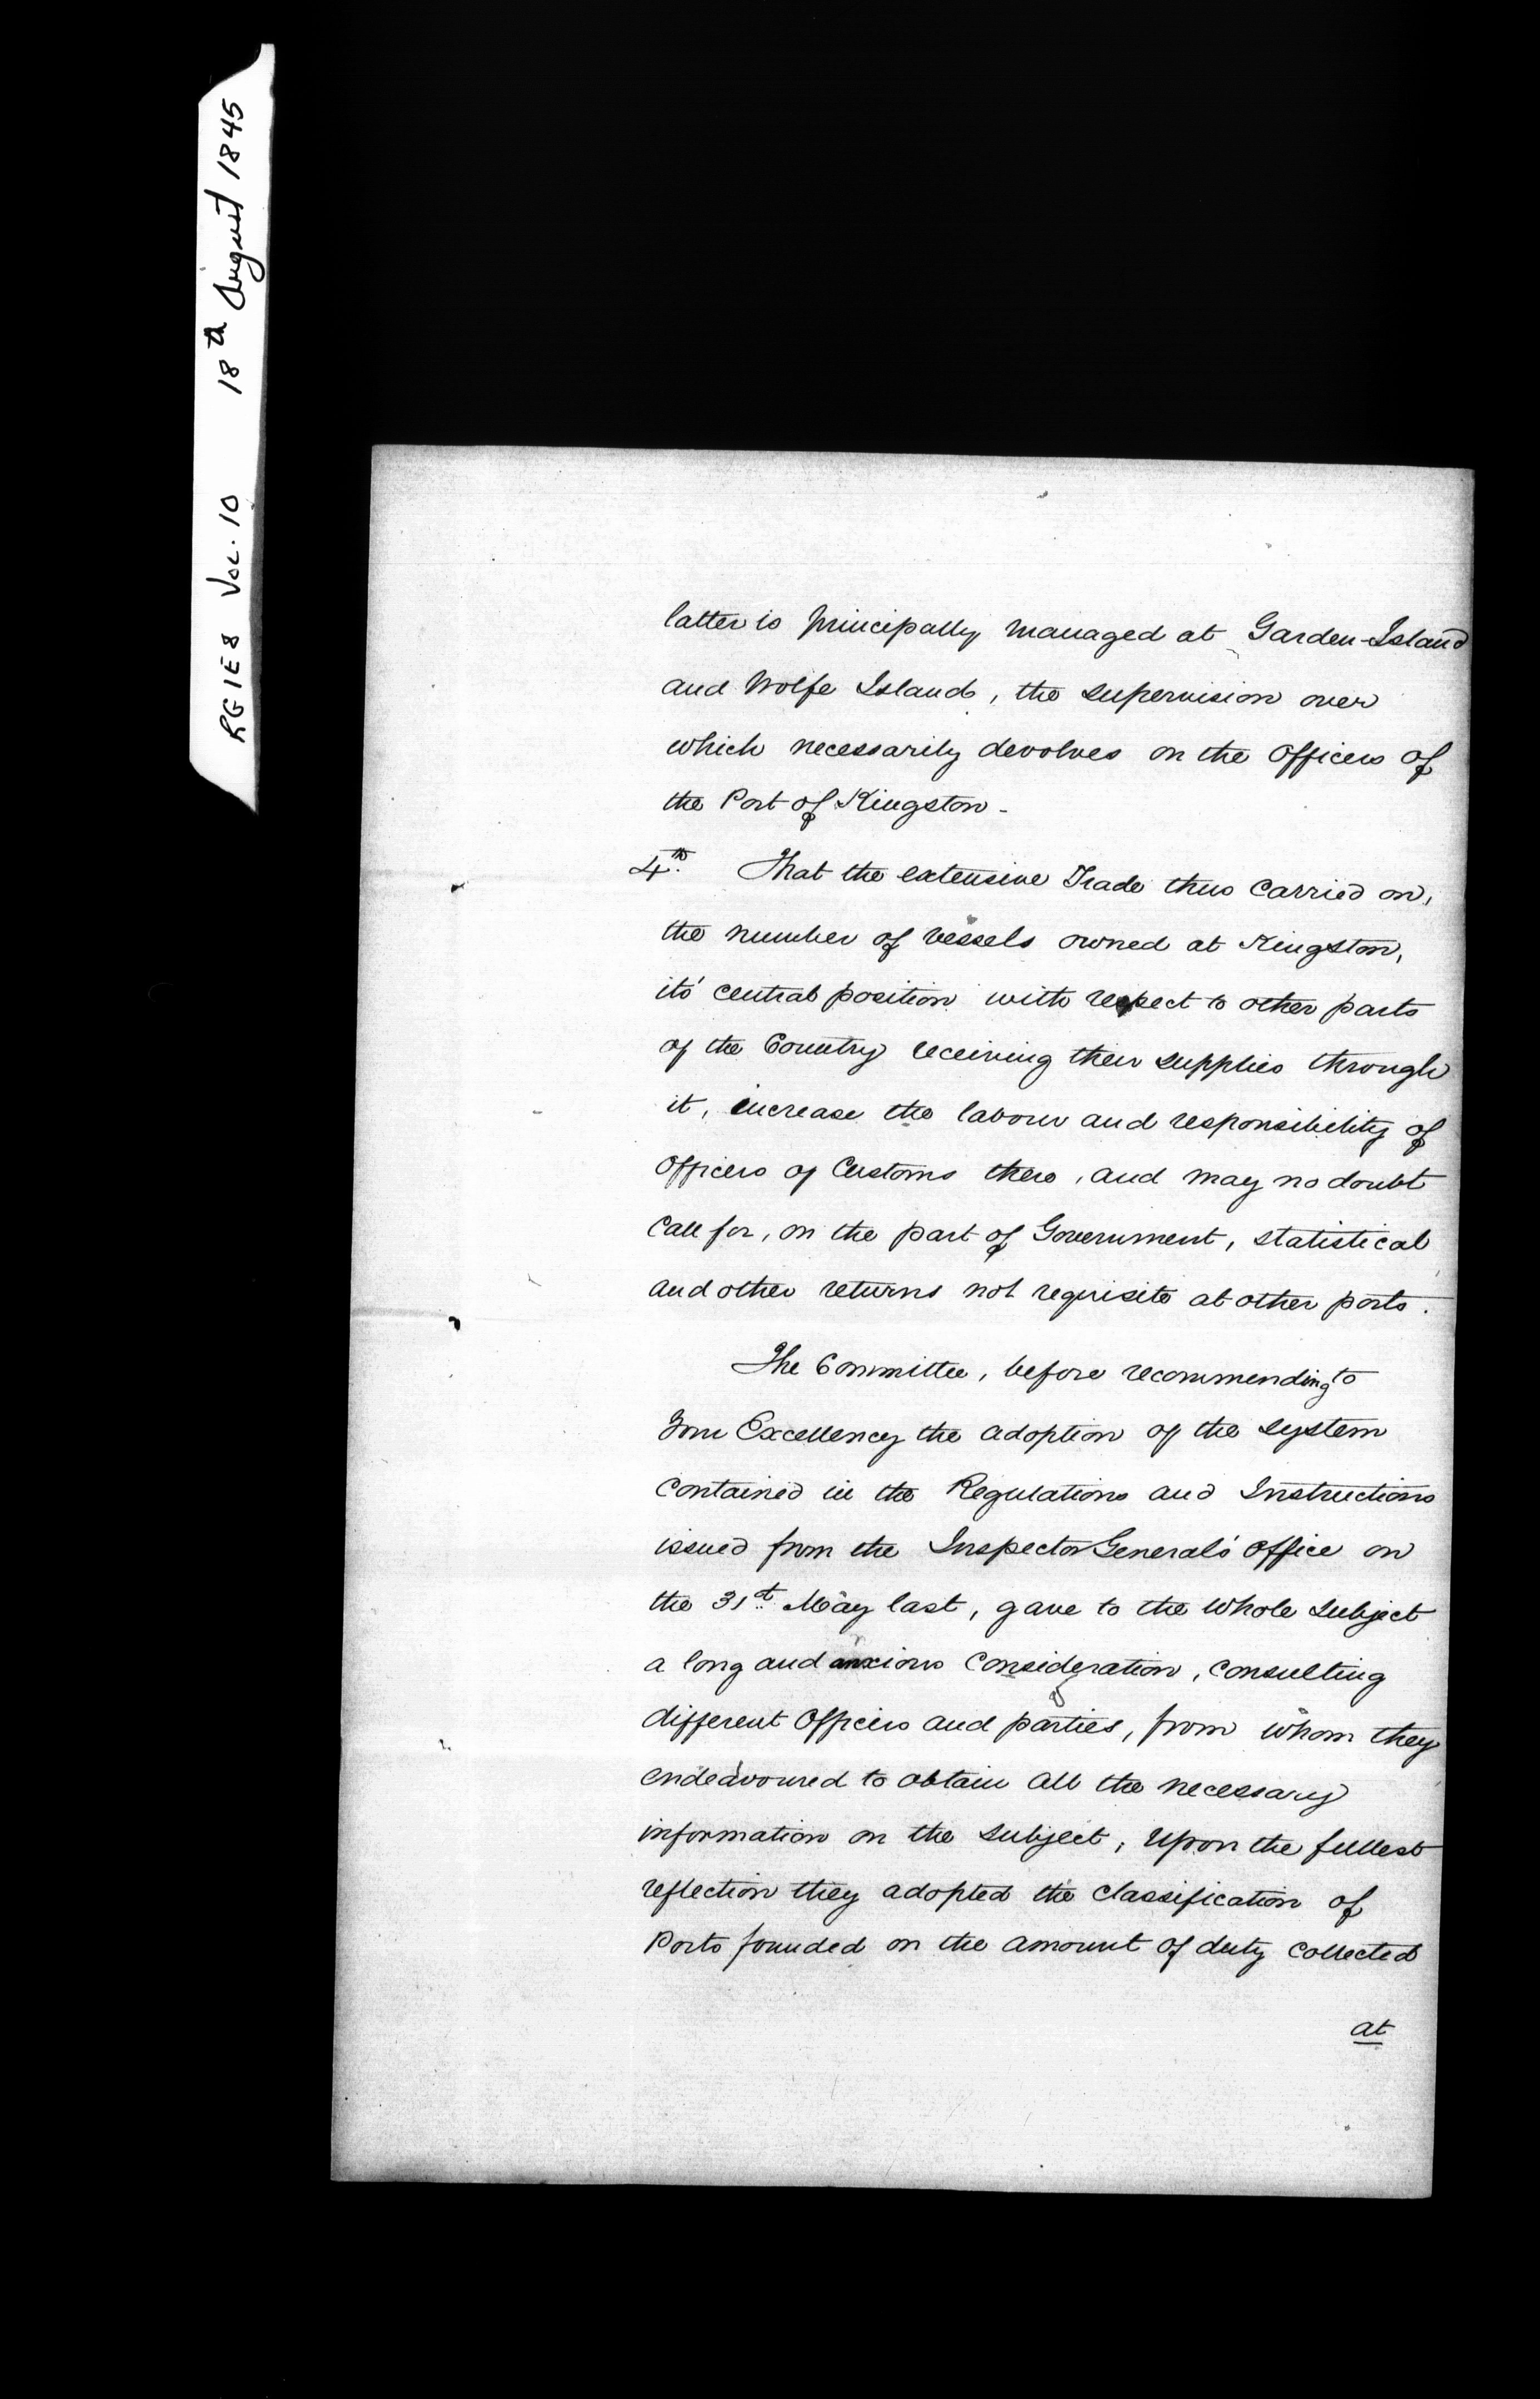 RG1E8 Vol. 10 18th August 1845
latter is principally managed at Garden-Island
and Wolfe Island, the supervision over
which necessarily devolves on the Officers of
the Port of Kingston -
4th. That the extensive Trade thus carried on,
the number of vessels owned at Kingston,
its' central position with respect to other parts
of the Country receiving their supplies through
it, increase the labour and responsibility of
Officers of Customs there, and may no doubt
call for, on the part of Government, statistical
and other returns not requisite at other ports.
The Committee, before recommending to
Your Excellency the adoption of the system
contained in the Regulations and Instructions
issued from the Inspector General's Office on
the 31st May last, gave to the whole subject
a long and anxious consideration, consulting
different Officers and parties, from whom they
endeavoured to obtain all the necessary
information on the subject, Upon the fullest
reflection they adopted the classification of
Ports founded on the amount of duty collected
at